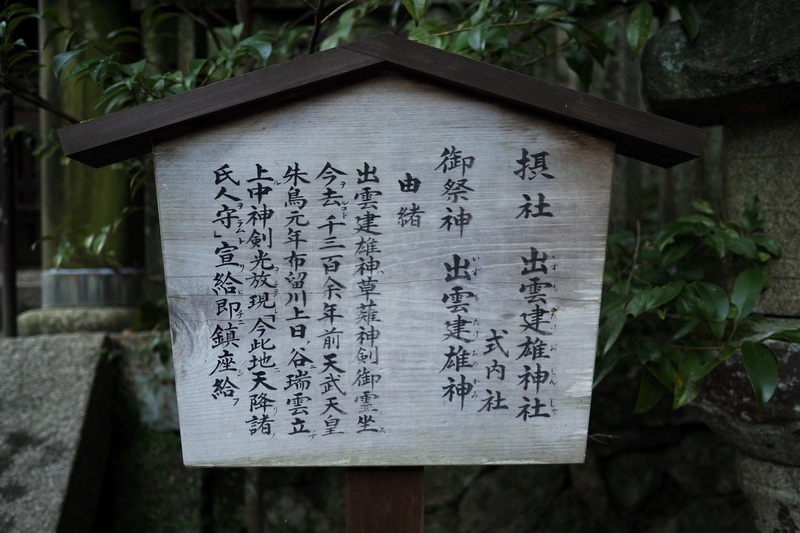 摂社 出雲建雄神社
式内社
御祭神 出雲建雄神
由緒
出雲建雄神草薙神剣御霊坐ス
今ヲ去ルコト千三百余年前天武天皇
朱鳥元年布留川上日ノ谷ニ瑞雲立ナ
上中神剣光放現今此地ニ天降リ諸ノ
氏人ヲ守ラムト」宣給即鎮座シ給フ